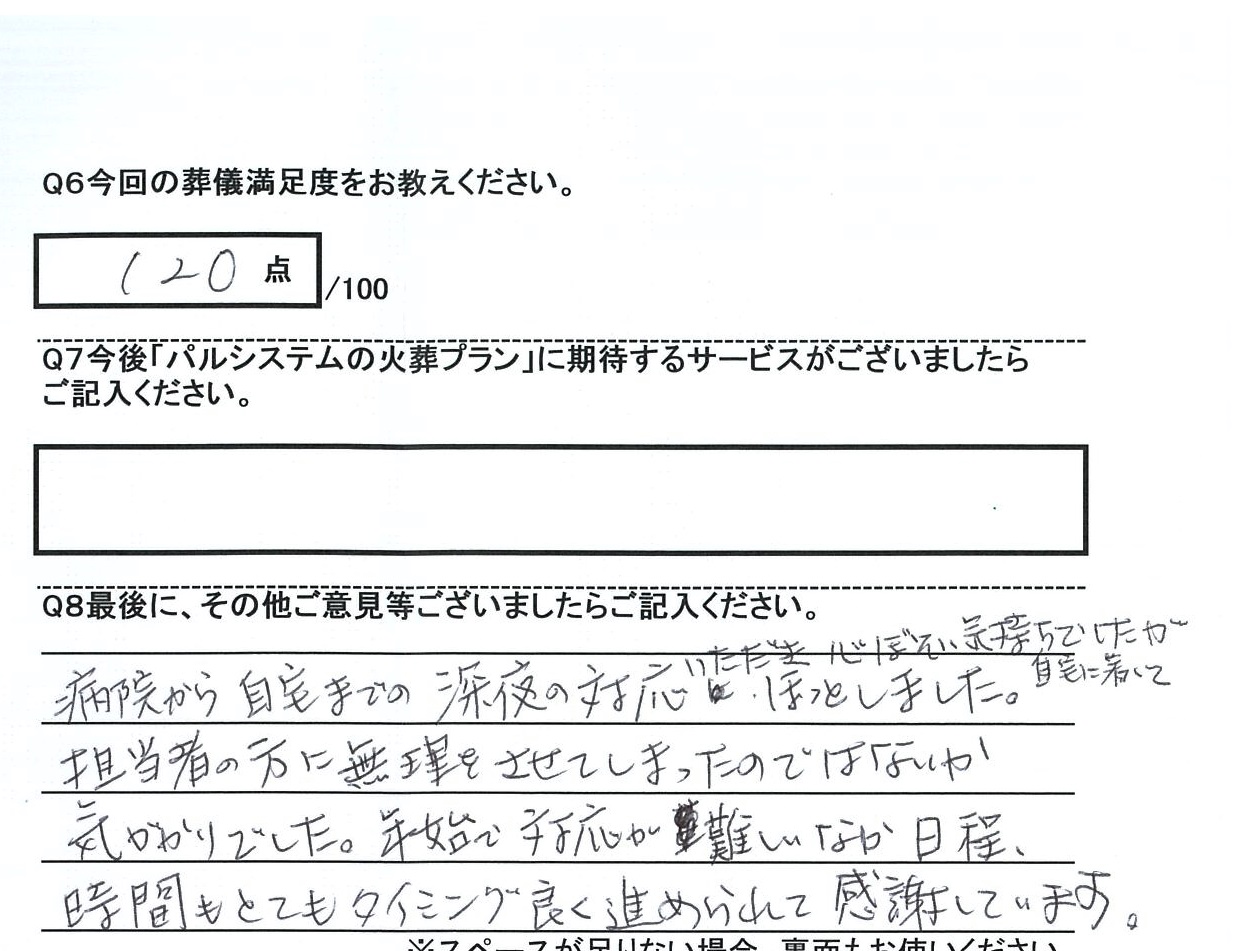 Q6今回の葬儀満足度をお教えください。
120 点
/100
Q7今後「パルシステムの火葬プラン」に期待するサービスがございましたら
ご記入ください。
Q8最後に、その他ご意見等ございましたらご記入ください。
いただき 心ぼそい気持ちでいたが
自宅に着いて
病院から自宅までの深夜の対応 ほっとしました。
担当者の方に無理をさせてしまったのではないか
気がかりでした。年始で対応が難しいなか日程、
時間もとてもタイミング良く進められて感謝しています。
※スペースが足りない場合、裏面もお使いください